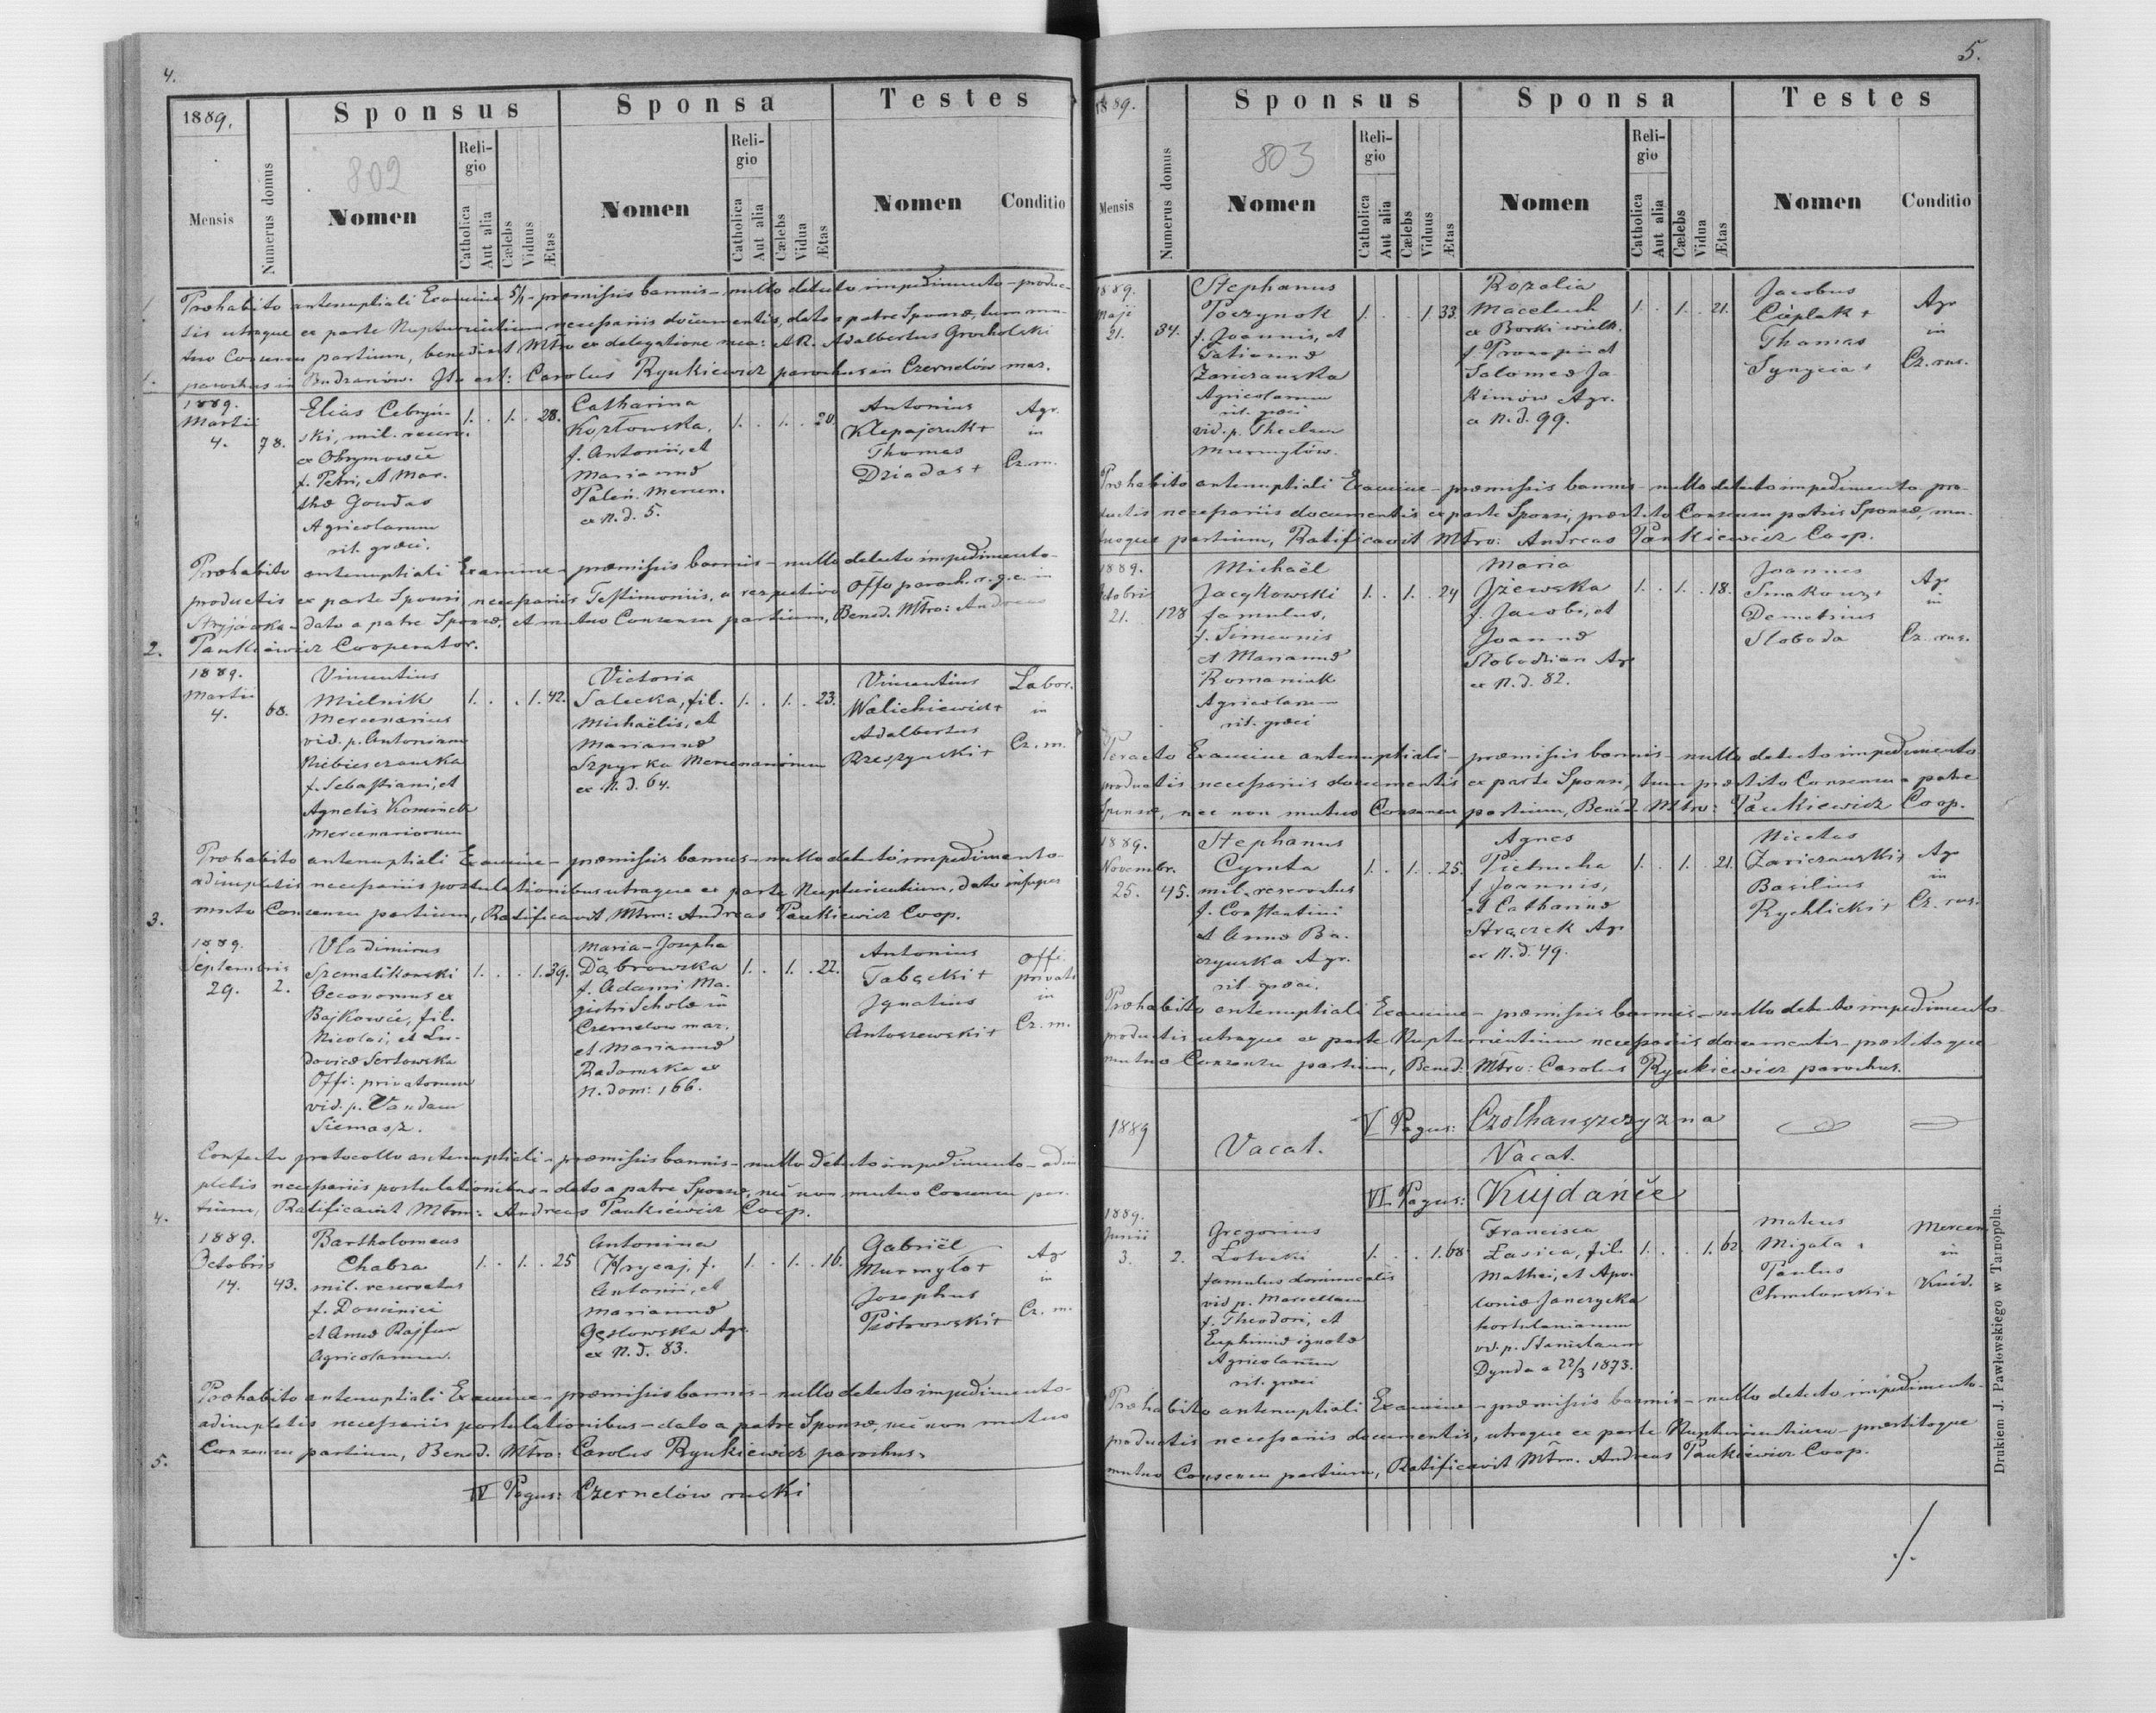 4.
1889.
Sponsus
Sponsa
Testes
802
Mensis
Numerus domus
Nomen
Religio
Catholica
Aut alia
Cælebs
Viduus
Ætas
Nomen
Religio
Catholica
Aut alia
Cælebs
Vidua
Ætas
Nomen
Conditio
Præhabito antenuptiali Examine præmissis bannis – nullo detecto impedimento – produc-
tis utraque ex parte Nupturientium necessariis documentis, dato a patre Sponsæ, tum mu-
tuo Consensu partium, benedixit Mtro ex delegatione mea: AR. Adalbertus Grocholski
parochus in Budzanów. Ita est: Carolus Rynkiewicz parochus in Czernelów maz.
1.
1889.
Martii
4.
78.
Elias Cebryń-
ski, mil. reserv.
ex Obrymowce
f. Petri, et Mar-
thæ Goudas
Agricolarum
rit. græci.
1. . 1. . 28.
Catharina
Kozłowska,
f. Antonii, et
Mariannæ
Paleń. Mercen.
ex N. d. 5.
1. . 1. . 20.
Antonius
Klepajczuk +
Thomas
Dziadas +
Agr.
in
Cz. m.
Præhabito antenuptiali Examine – præmissis bannis – nullo detecto impedimento –
productis ex parte Sponsi necessariis Testimoniis, a respectivo Offo paroch. r. g. c. in
Stryjówka – dato a patre Sponsæ, et mutuo Consensu partium, Bened. Mtro: Andreas
Pankiewicz Cooperator.
2.
1889.
Martii
4.
68.
Vincentius
Mielnik
Mercenarius
vid. p. Antoniam
Niebieszczanska
f. Sebastiani, et
Agnetis Kominek
Mercenariorum
1. . . 1. 42.
Victoria
Salecka, fil.
Michaëlis, et
Mariannæ
Szpyrka Mercenariorum
ex N. d. 64.
1. . 1. . 23.
Vincentius
Walichiewicz +
Adalbertus
Rzeszynski +
Labor.
in
Cz. m.
Præhabito antenuptiali Examine – præmissis bannis – nullo detecto impedimento –
adimpletis necessariis postulationibus utraque ex parte Nupturientium, dato insuper
mutuo Consensu partium, Ratificavit Mtrm: Andreas Pankiewicz Coop.
3.
1889.
Septembris
29.
2.
Vladimirus
Szmalikowski
Oeconomus ex
Bajkowce, fil.
Nicolai, et Lu-
dovicæ Sertowska
Offi. privatorum
vid. p. Vandam
Siemasz.
1. . . 1. 39.
Maria-Josepha
Dąbrowska
f. Adami Ma-
gistri Scholæ in
Czernelow maz.
et Mariannæ
Radomska ex
N. dom: 166.
1. . 1. . 22.
Antonius
Tabęcki +
Ignatius
Antoszewski +
Offi.
privati
in
Cz. m.
Confecto protocollo antenuptiali – præmissis bannis – nullo detecto impedimento – adim-
pletis necessariis postulationibus – dato a patre Sponsæ, nec non mutuo Consensu par-
tium, Ratificavit Mtrm: Andreas Pankiewicz Coop.
4.
1889.
Octobris
14.
43.
Bartholomeus
Chabza
mil. reservatus
f. Dominici
et Annæ Rajfur
Agricolarum.
1. . 1. . 25
Antonina
Hrycaj, f.
Antonii, et
Mariannæ
Gęstowska Agr.
ex N. d. 83.
1. . 1. . 16.
Gabriël
Murmyło +
Josephus
Piotrowski +
Agr
in
Cz. m.
Præhabito antenuptiali Examine – præmissis bannis – nullo detecto impedimento –
adimpletis necessariis postulationibus – dato a patre Sponsæ, nec non mutuo
Consensu partium, Bened. Mtro: Carolus Rynkiewicz parochus.
5.
IV Pagus: Czernelów ruski
5.
1889.
Sponsus
Sponsa
Testes
803
Mensis
Numerus domus
Nomen
Religio
Catholica
Aut alia
Cælebs
Viduus
Ætas
Nomen
Religio
Catholica
Aut alia
Cælebs
Vidua
Ætas
Nomen
Conditio
1889.
Maji
21.
34.
Stephanus
Poczynok
f. Joannis, et
Tatiannæ
Zariczanska
Agricolarum
rit. græci
vid. p. Theclam
Murmyłów.
1. . . 1. 33.
Rozalia
Maceluch
ex Borki wielk.
f. Procopii et
Salomeæ Ja-
kimów Agr.
a N. d. 99.
1. . 1. . 21.
Jacobus
Ciéplak +
Thomas
Synycia +
Agr
in
Cz. rus.
Præhabito antenuptiali Examine – præmissis bannis – nullo detecto impedimento pro-
ductis necessariis documentis ex parte Sponsi, præstito Consensu patris Sponsæ, mu-
tuoque partium, Ratificavit Mtro: Andreas Pankiewicz Coop.
1889.
Octobris
21.
128
Michaël
Jacykowski
famulus,
f. Simeonis
et Mariannæ
Romaniak
Agricolarum
rit. græci
1. . 1. . 24
Maria
Iżewska
f. Jacobi, et
Joannæ
Slobodzian Agr
ex N. d. 82.
1. . 1. . 18.
Joannes
Smakouz +
Demetrius
Sloboda
Agr
in
Cz. rus.
Peracto Examine antenuptiali – præmissis bannis – nullo detecto impedimento
productis necessariis documentis ex parte Sponsi, tum præstito Consensu a patre
Sponsæ, nec non mutuo Consensu partium, Bened. Mtro: Pankiewicz Coop.
1889.
Novembr.
25.
45.
Stephanus
Cymta
mil. reservatus
f. Constantini
et Annæ Ba-
czynska Agr.
rit. græci.
1. . 1. . 25.
Agnes
Pietrucha
f. Joannis,
et Catharinæ
Strączek Agr
ex N. d. 49.
1. . 1. . 21.
Nicetas
Zariczanski +
Basilius
Rychlicki +
Agr
in
Cz. rus.
Præhabito antenuptiali Examine – præmissis bannis – nullo detecto impedimento –
productis utraque ex parte Nupturientium necessariis documentis – præstitoque
mutuo Consensu partium, Bened. Mtro: Carolus Rynkiewicz parochus.
1889
V Pagus: Czolhanszczyzna
Vacat.
Vacat.
VI Pagus: Kujdańce
1889.
Junii
3.
2.
Gregorius
Łotucki
famulus dominicalis
vid p. Marcellam
f. Theodori, et
Euphimiæ ignotæ
Agricolarum
rit. græci
1. . . 1. 68
Francisca
Lasica, fil.
Mathei, et Apo-
loniæ Janczycka
hortulanorum
vid. p. Stanislaum
Dynda a 22/3 1873.
1. . . 1. 62.
Mateus
Migała +
Paulus
Chmelowski +
Mercen.
in
Kuid.
Præhabito antenuptiali Examine – præmissis bannis – nullo detecto impedimento –
productis necessariis documentis, utraque ex parte Nupturientium – præstitoque
mutuo Consensu partium, Ratificavit Mtrm. Andreas Pankiewicz Coop.
Drukiem J. Pawłowskiego w Tarnopolu.